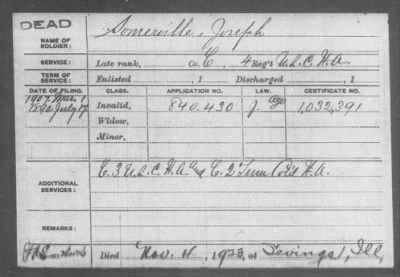 DEAD
NAME OF SOLDIER: Somerville, Joseph
SERVICE: Late rank, Co. C, 4 Reg't U.S.C.H.A.
TERM OF SERVICE: Enlisted , 1 Discharged , 1
DATE OF FILING. CLASS. APPLICATION NO. LAW. CERTIFICATE NO.
1907 Mar. 1
1890 July 17 Invalid, 840.430 J. age 1,032,391
Widow,
Minor,
ADDITIONAL SERVICES: C. 3 U.S.C.H.A. and C. 2" Tenn Cold H.A.
REMARKS:
Died Nov. 11, 1923, at Savings, Ill,